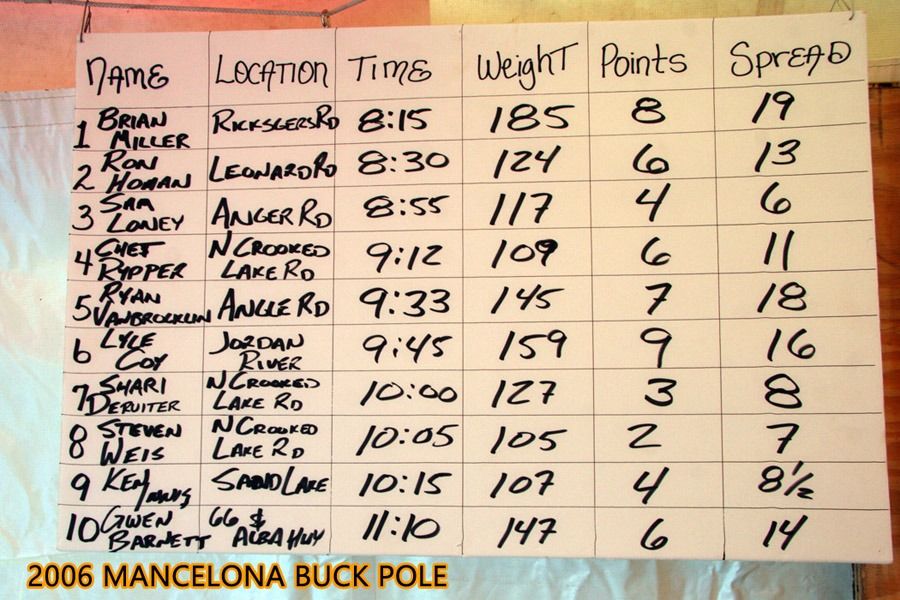 NAME LOCATION TIME WeighT Points SPREAD
1 BRIAN MILLER RICKSGERS RD 8:15 185 8 19
2 RON HOMAN LEONARD RD 8:30 124 6 13
3 SAM LONEY ANGER RD 8:55 117 4 6
4 CHET RYPPER N CROOKED LAKE RD 9:12 109 6 11
5 RYAN VANBROCKLIN ANGLE RD 9:33 145 7 18
6 LYLE COY JORDAN RIVER 9:45 159 9 16
7 SHARI DERUITER N CROOKED LAKE RD 10:00 127 3 8
8 STEVEN WEIS N CROOKED LAKE RD 10:05 105 2 7
9 KEN SAND LAKE 10:15 107 4 8 1/2
10 GWEN BARNETT 66 & ALBA HWY 11:10 147 6 14
2006 MANCELONA BUCK POLE